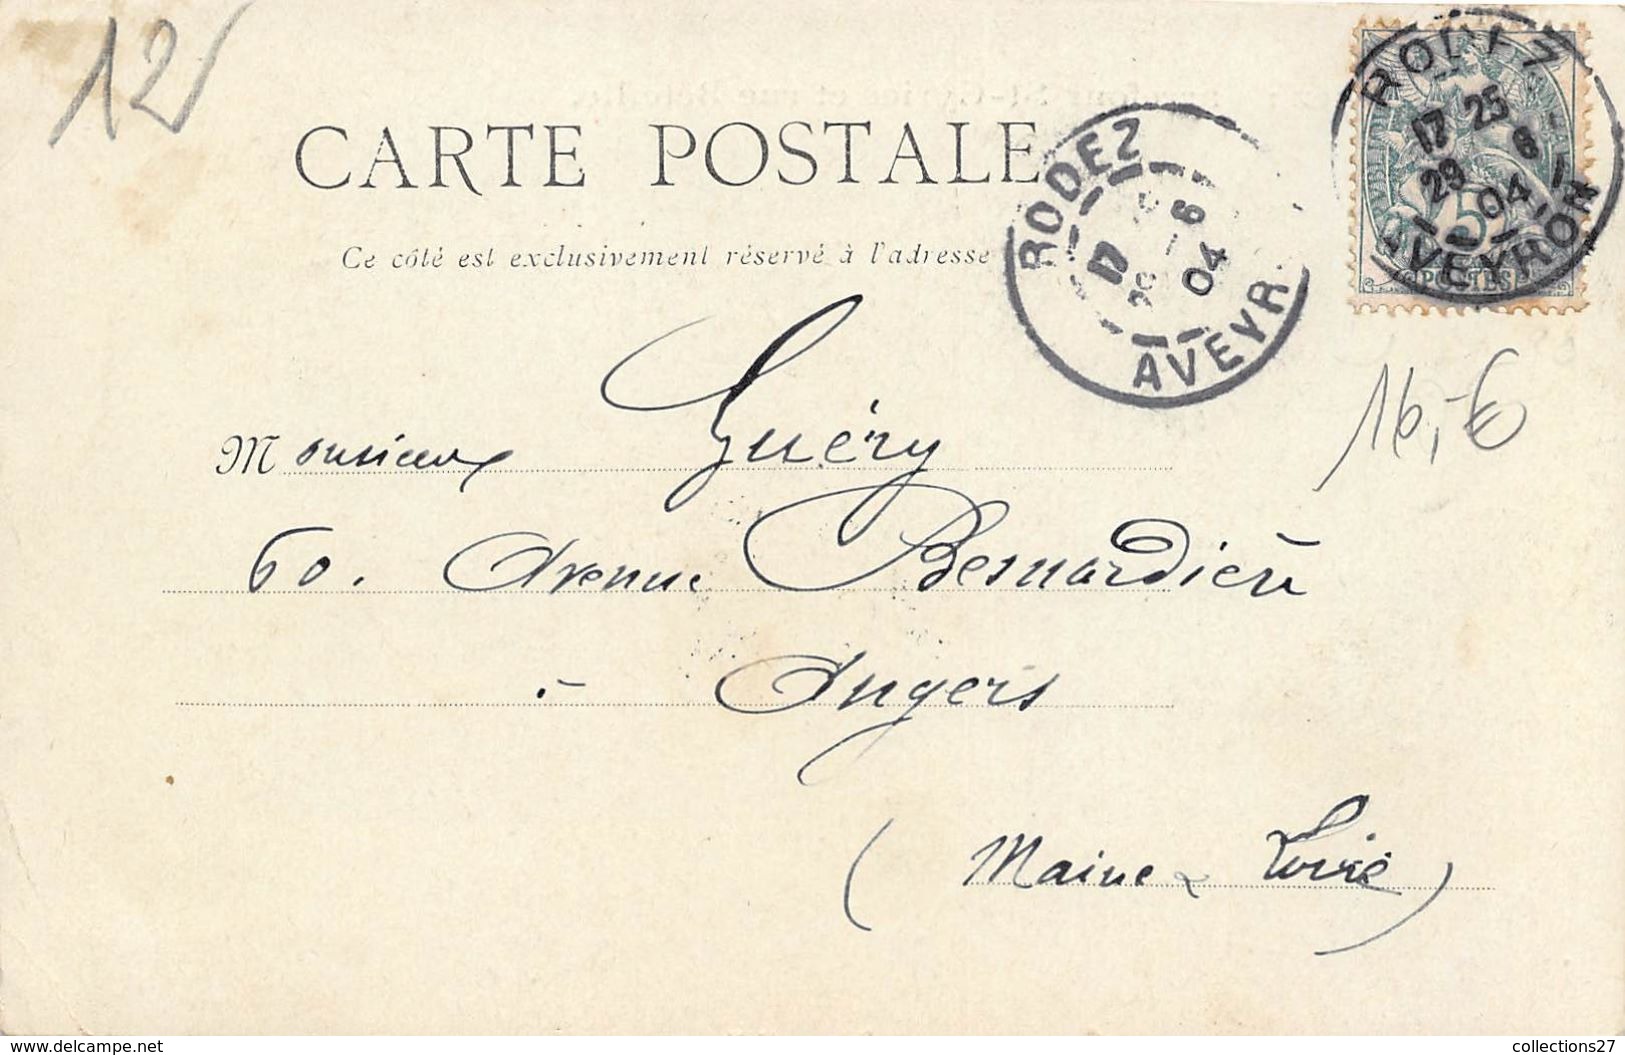 12
CARTE POSTALE
Ce côté est exclusivement réservé à l'adresse
RODEZ
17
6
04
AVEYR.
RODEZ
17 25
29 6
04
AVEYRON
5
POSTES
16,-€
Monsieur Guéry
60. Avenue Besnardière
à Angers
(Maine & Loire)
www.delcampe.net
collections27